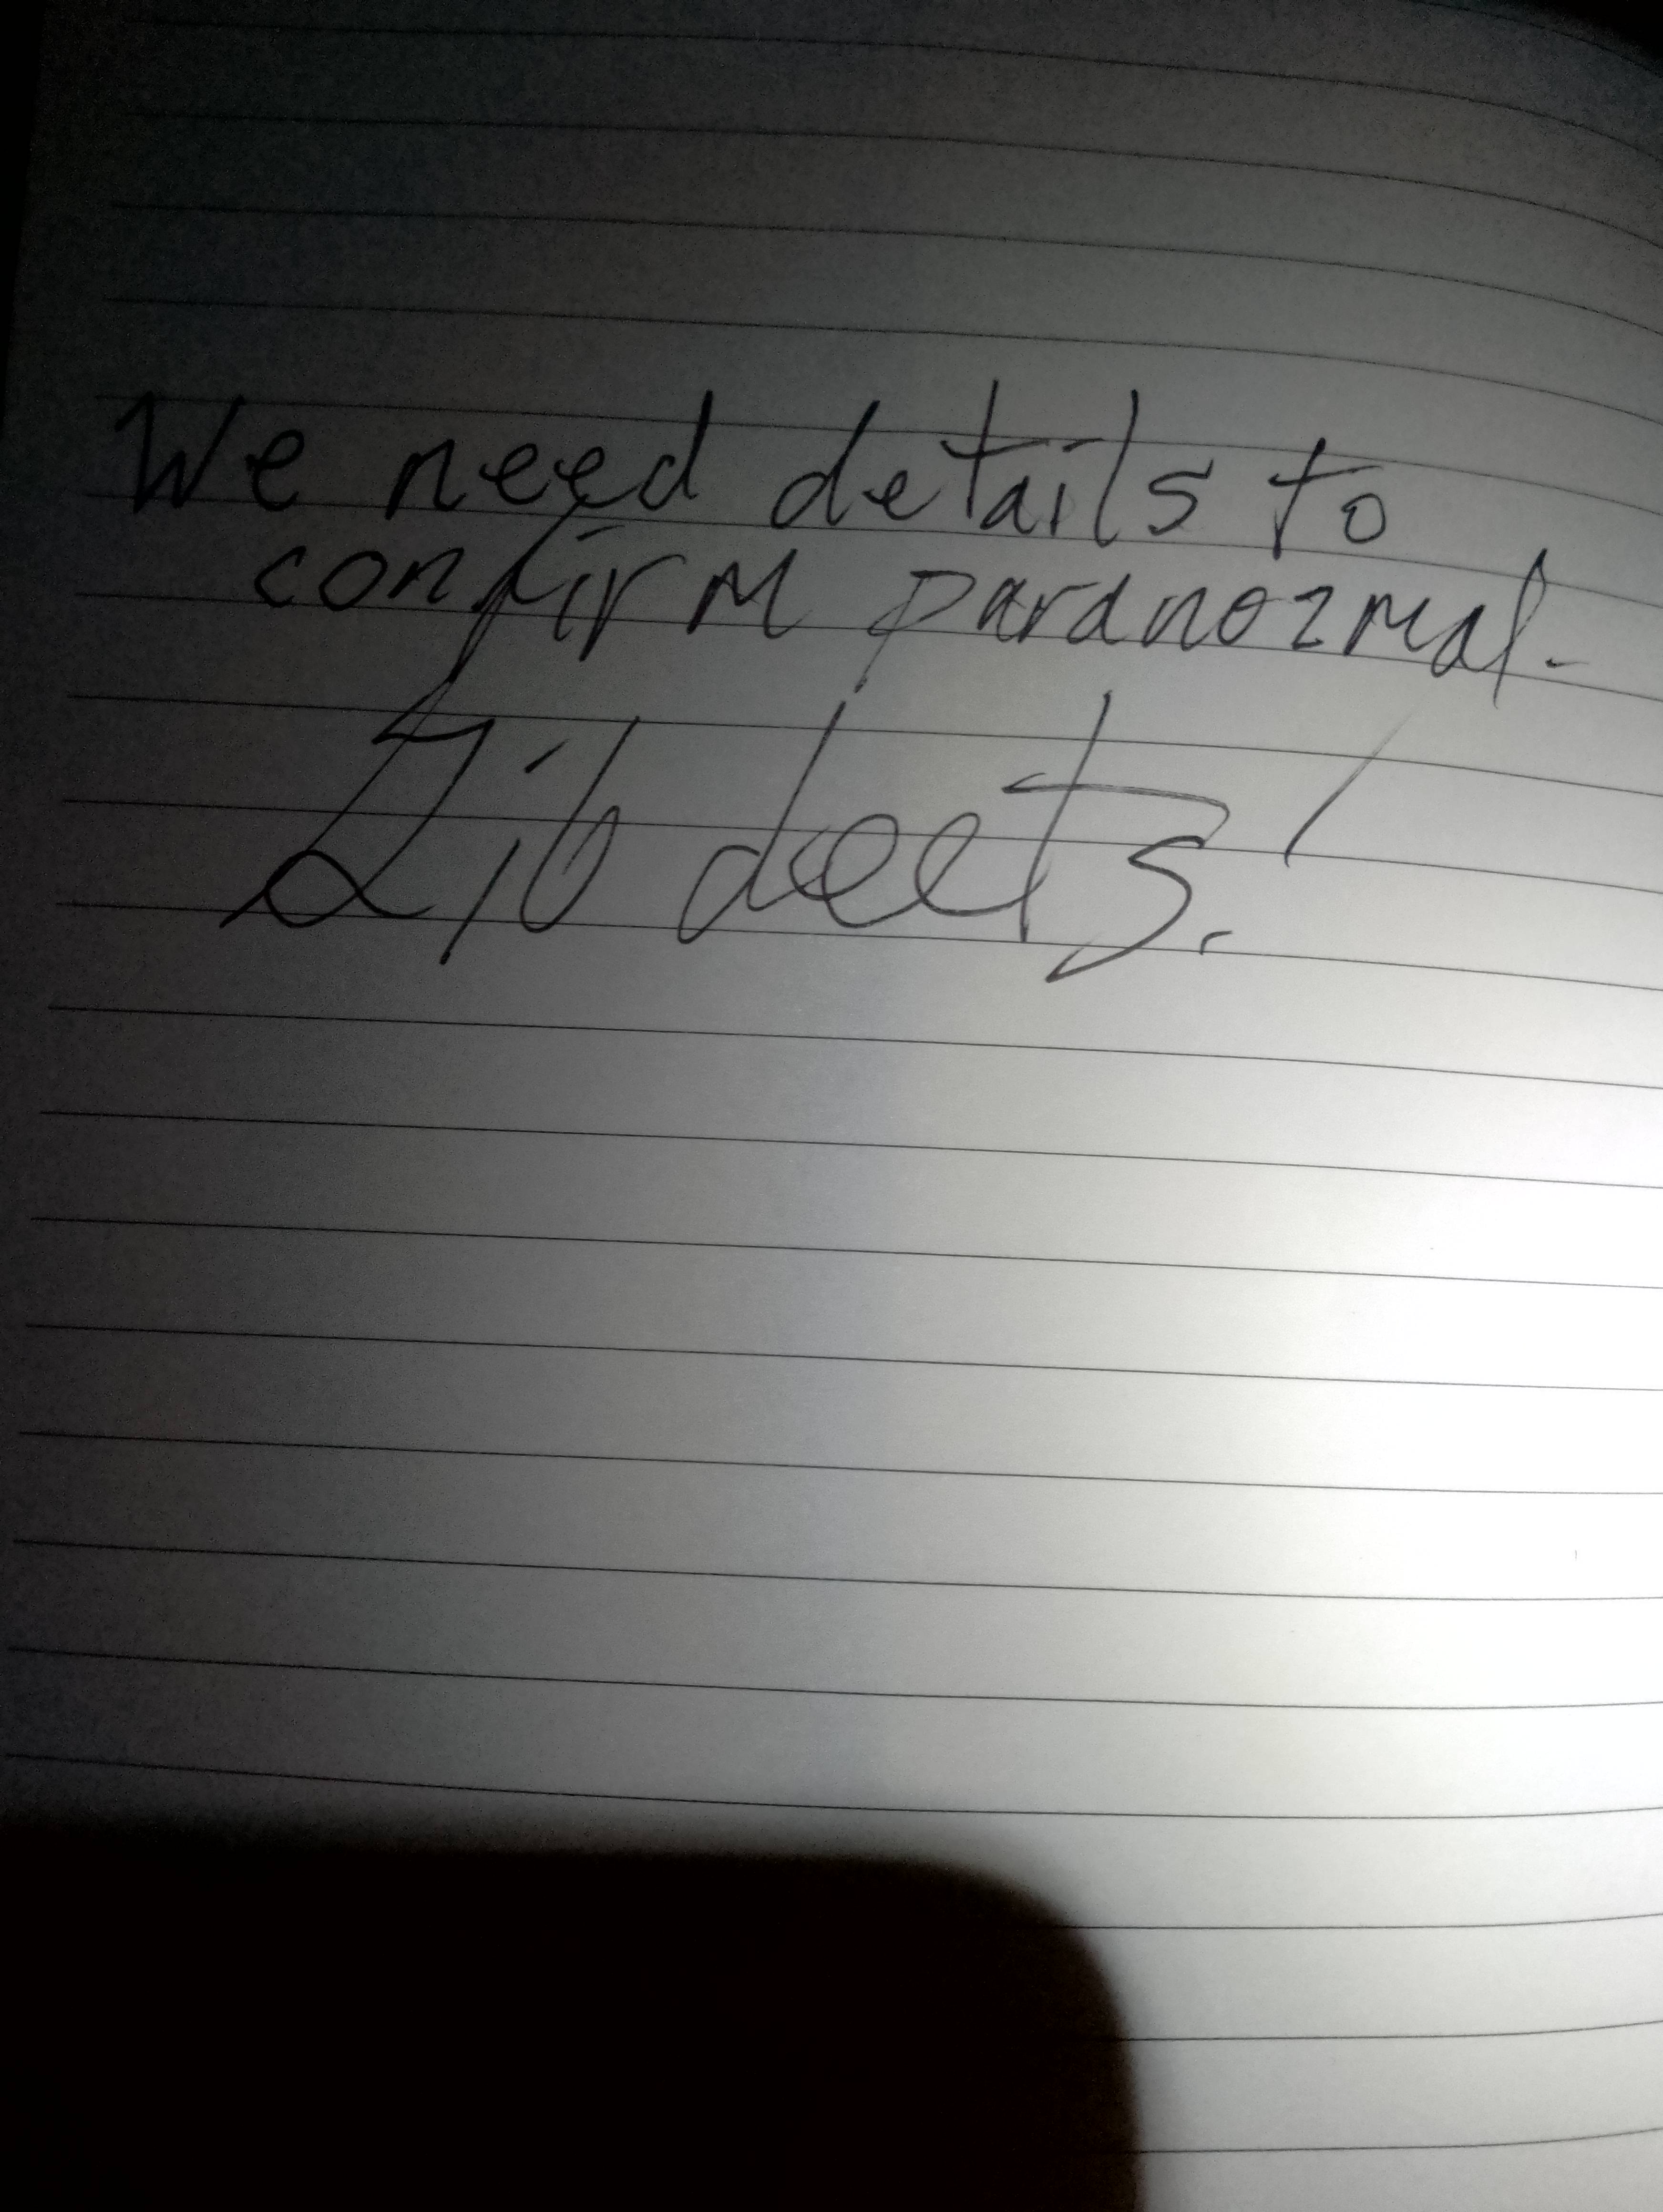 We need details to
confirm paranormal.
Gib deets!